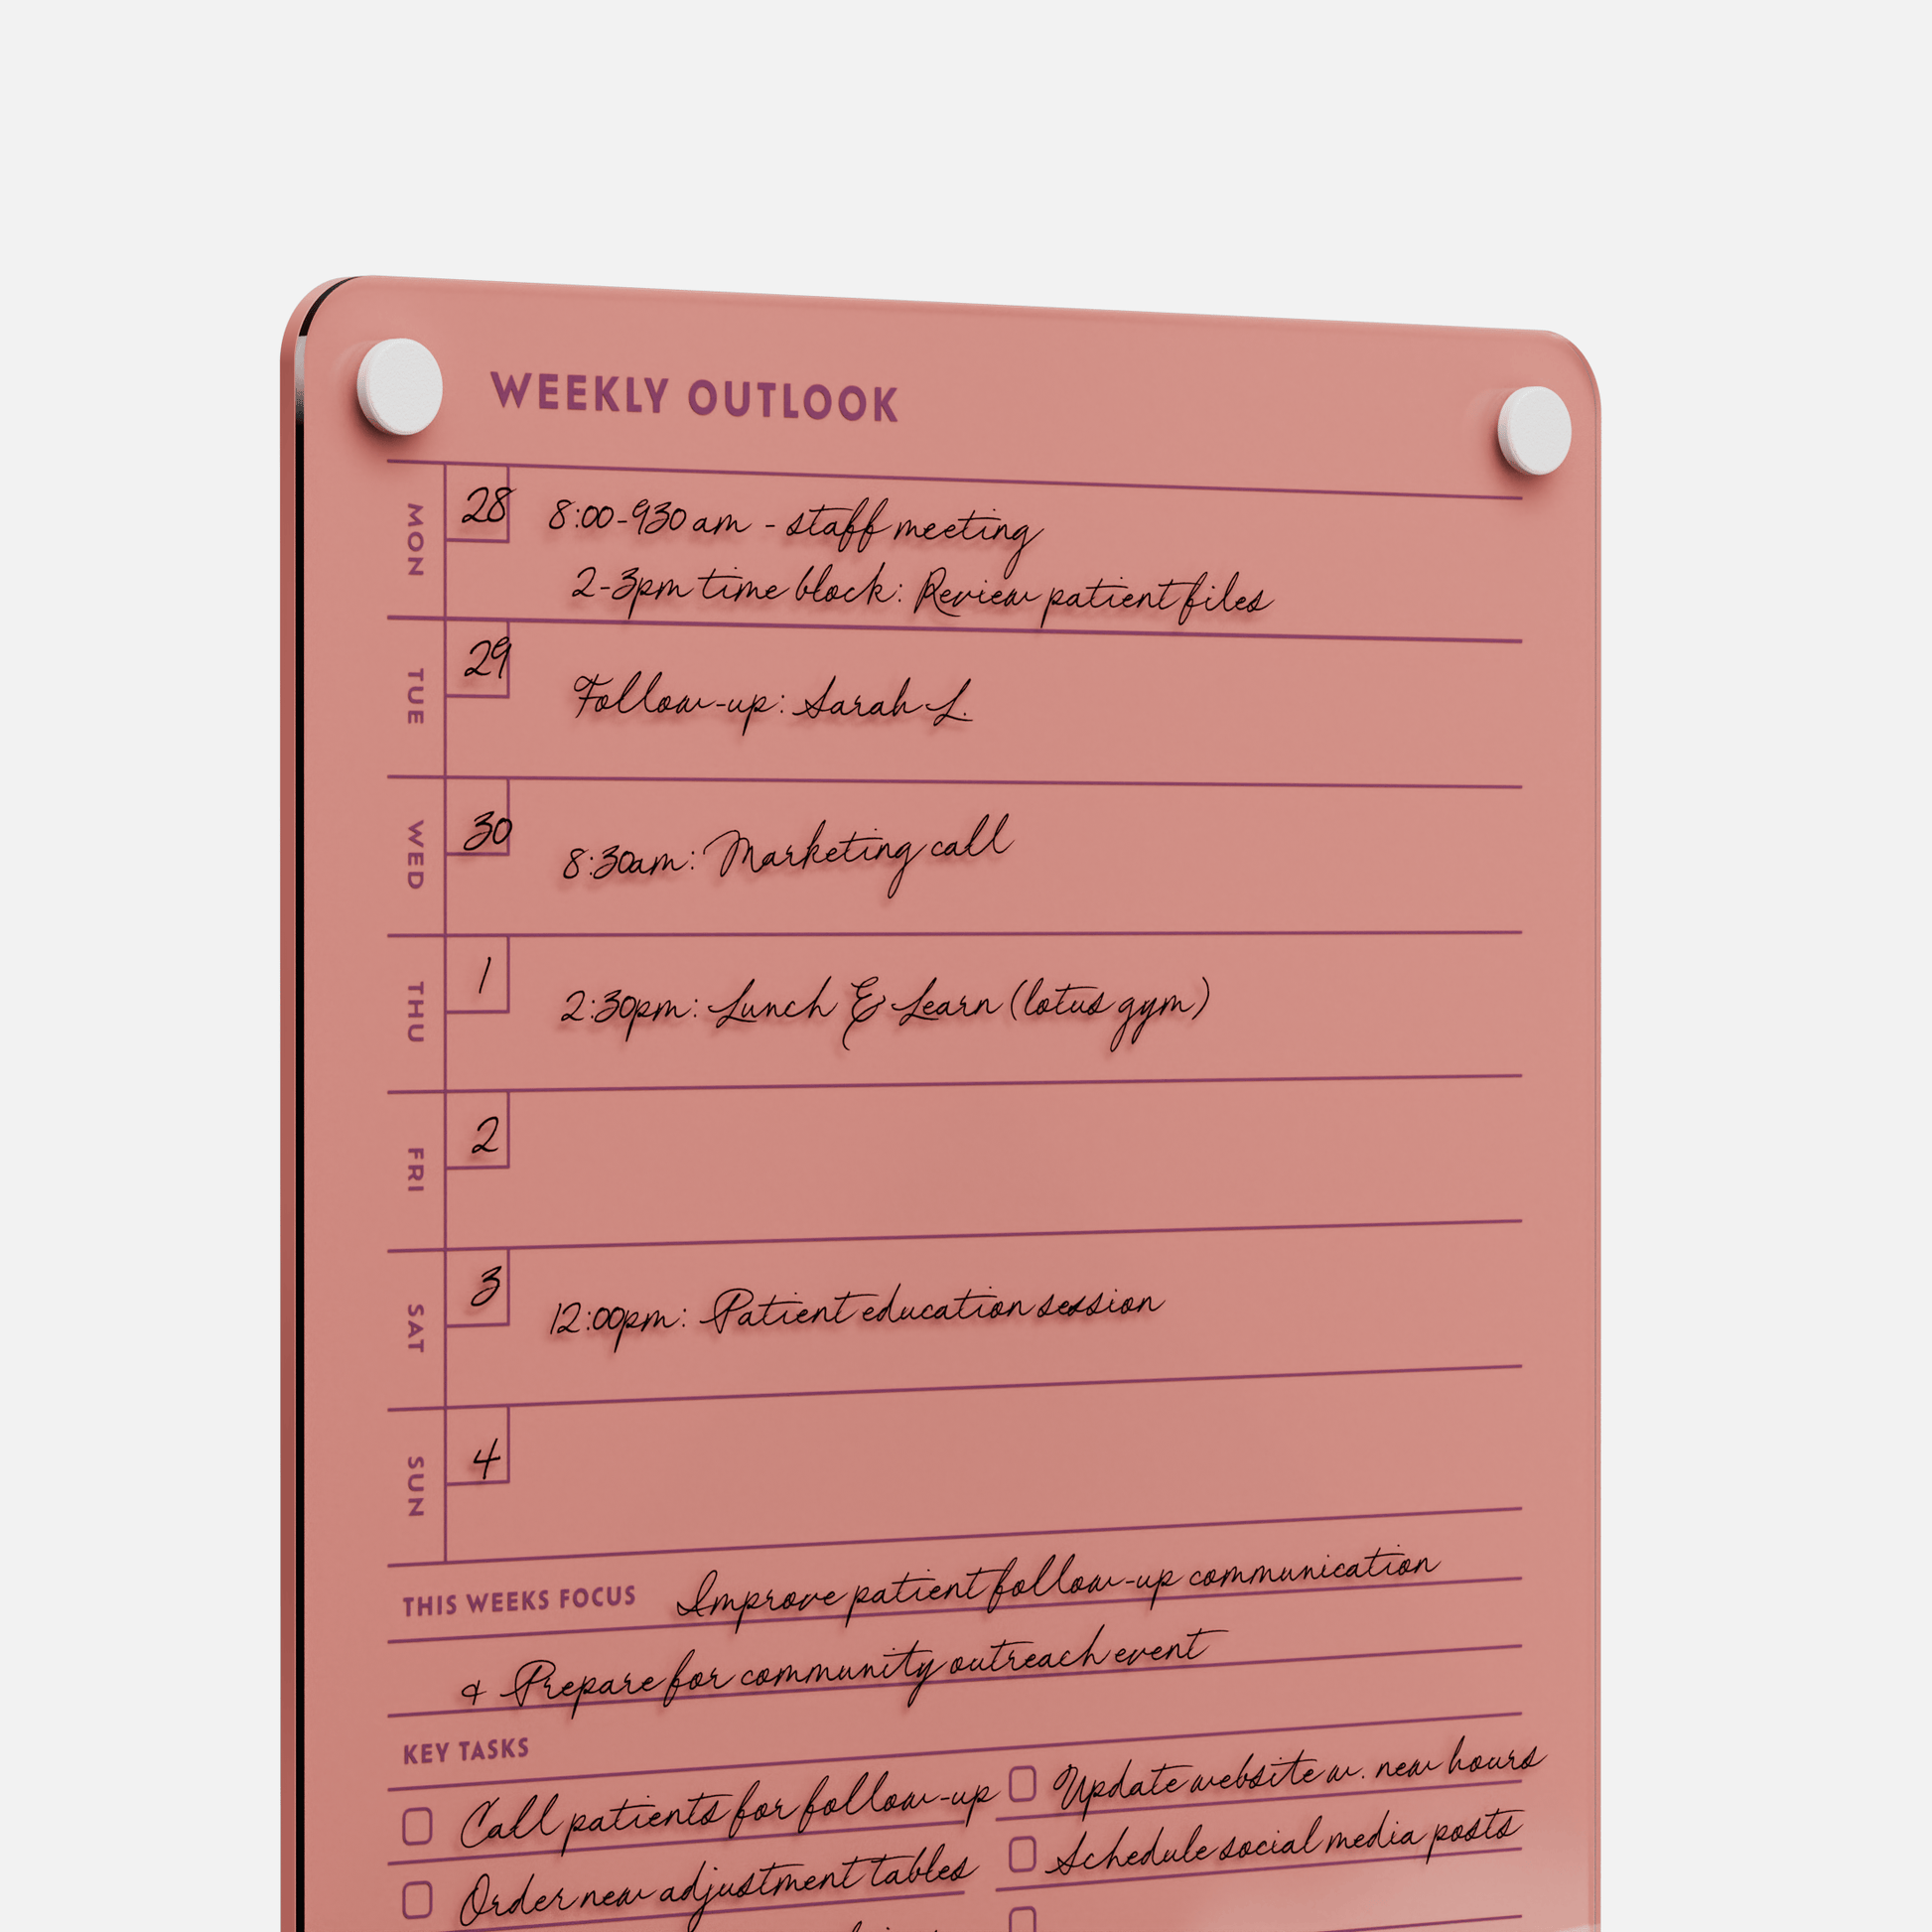 WEEKLY OUTLOOK
MON 28 8:00-930am - staff meeting
2-3pm time block: Review patient files
TUE 29 Follow-up: Sarah L.
WED 30 8:30am: Marketing call
THU 1 2:30pm: Lunch & Learn (lotus gym)
FRI 2
SAT 3 12:00pm: Patient education session
SUN 4
THIS WEEKS FOCUS Improve patient follow-up communication
& Prepare for community outreach event
KEY TASKS
Call patients for follow-up
Order new adjustment tables
Update website w. new hours
Schedule social media posts